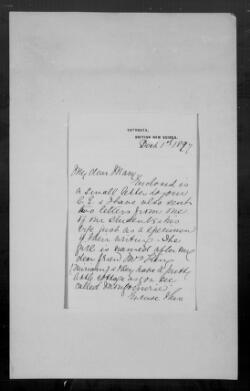 VATORATA,
BRITISH NEW GUINEA.
Dec 1st 1897
My dear Mary
Enclosed is
a small letter to your
C.E.s I have also sent
two letters from one
of our students & his
wife just as a specimen
of their writing. The
girl is named after my
dear friend Mrs
& they have a pretty
little cottage as you see
called
Excuse